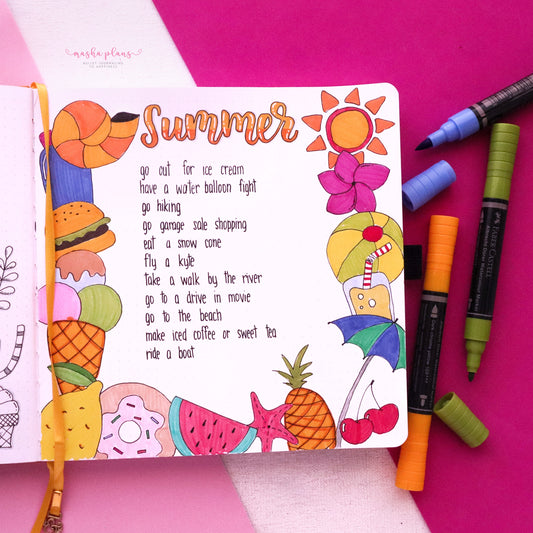 masha plans
BULLET JOURNALING
TO HAPPINESS
Summer
go out for ice cream
have a water balloon fight
go hiking
go garage sale shopping
eat a snow cone
fly a kyte
take a walk by the river
go to a drive in movie
go to the beach
make iced coffee or sweet tea
ride a boat
FABER-CASTELL